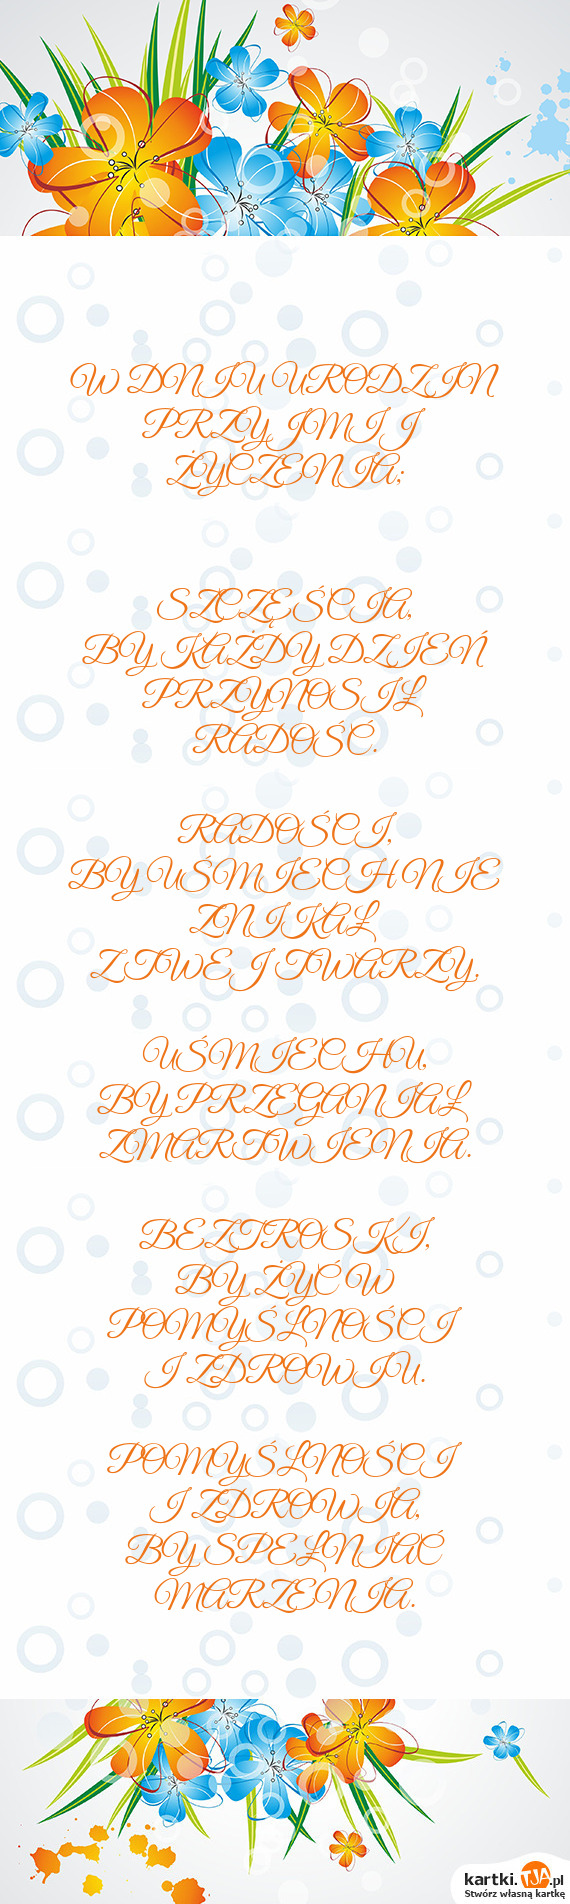 W DNIU URODZIN
PRZYJMIJ
ŻYCZENIA;
SZCZĘŚCIA,
BY KAŻDY DZIEŃ
PRZYNOSIŁ
RADOŚĆ.
RADOŚCI,
BY UŚMIECH NIE
ZNIKAŁ
Z TWEJ TWARZY,
UŚMIECHU,
BY PRZEGANIAŁ
ZMARTWIENIA.
BEZTROSKI,
BY ŻYĆ W
POMYŚLNOŚCI
I ZDROWIU.
POMYŚLNOŚCI
I ZDROWIA,
BY SPEŁNIAĆ
MARZENIA.
kartki.TJA.pl
Stwórz własną kartkę